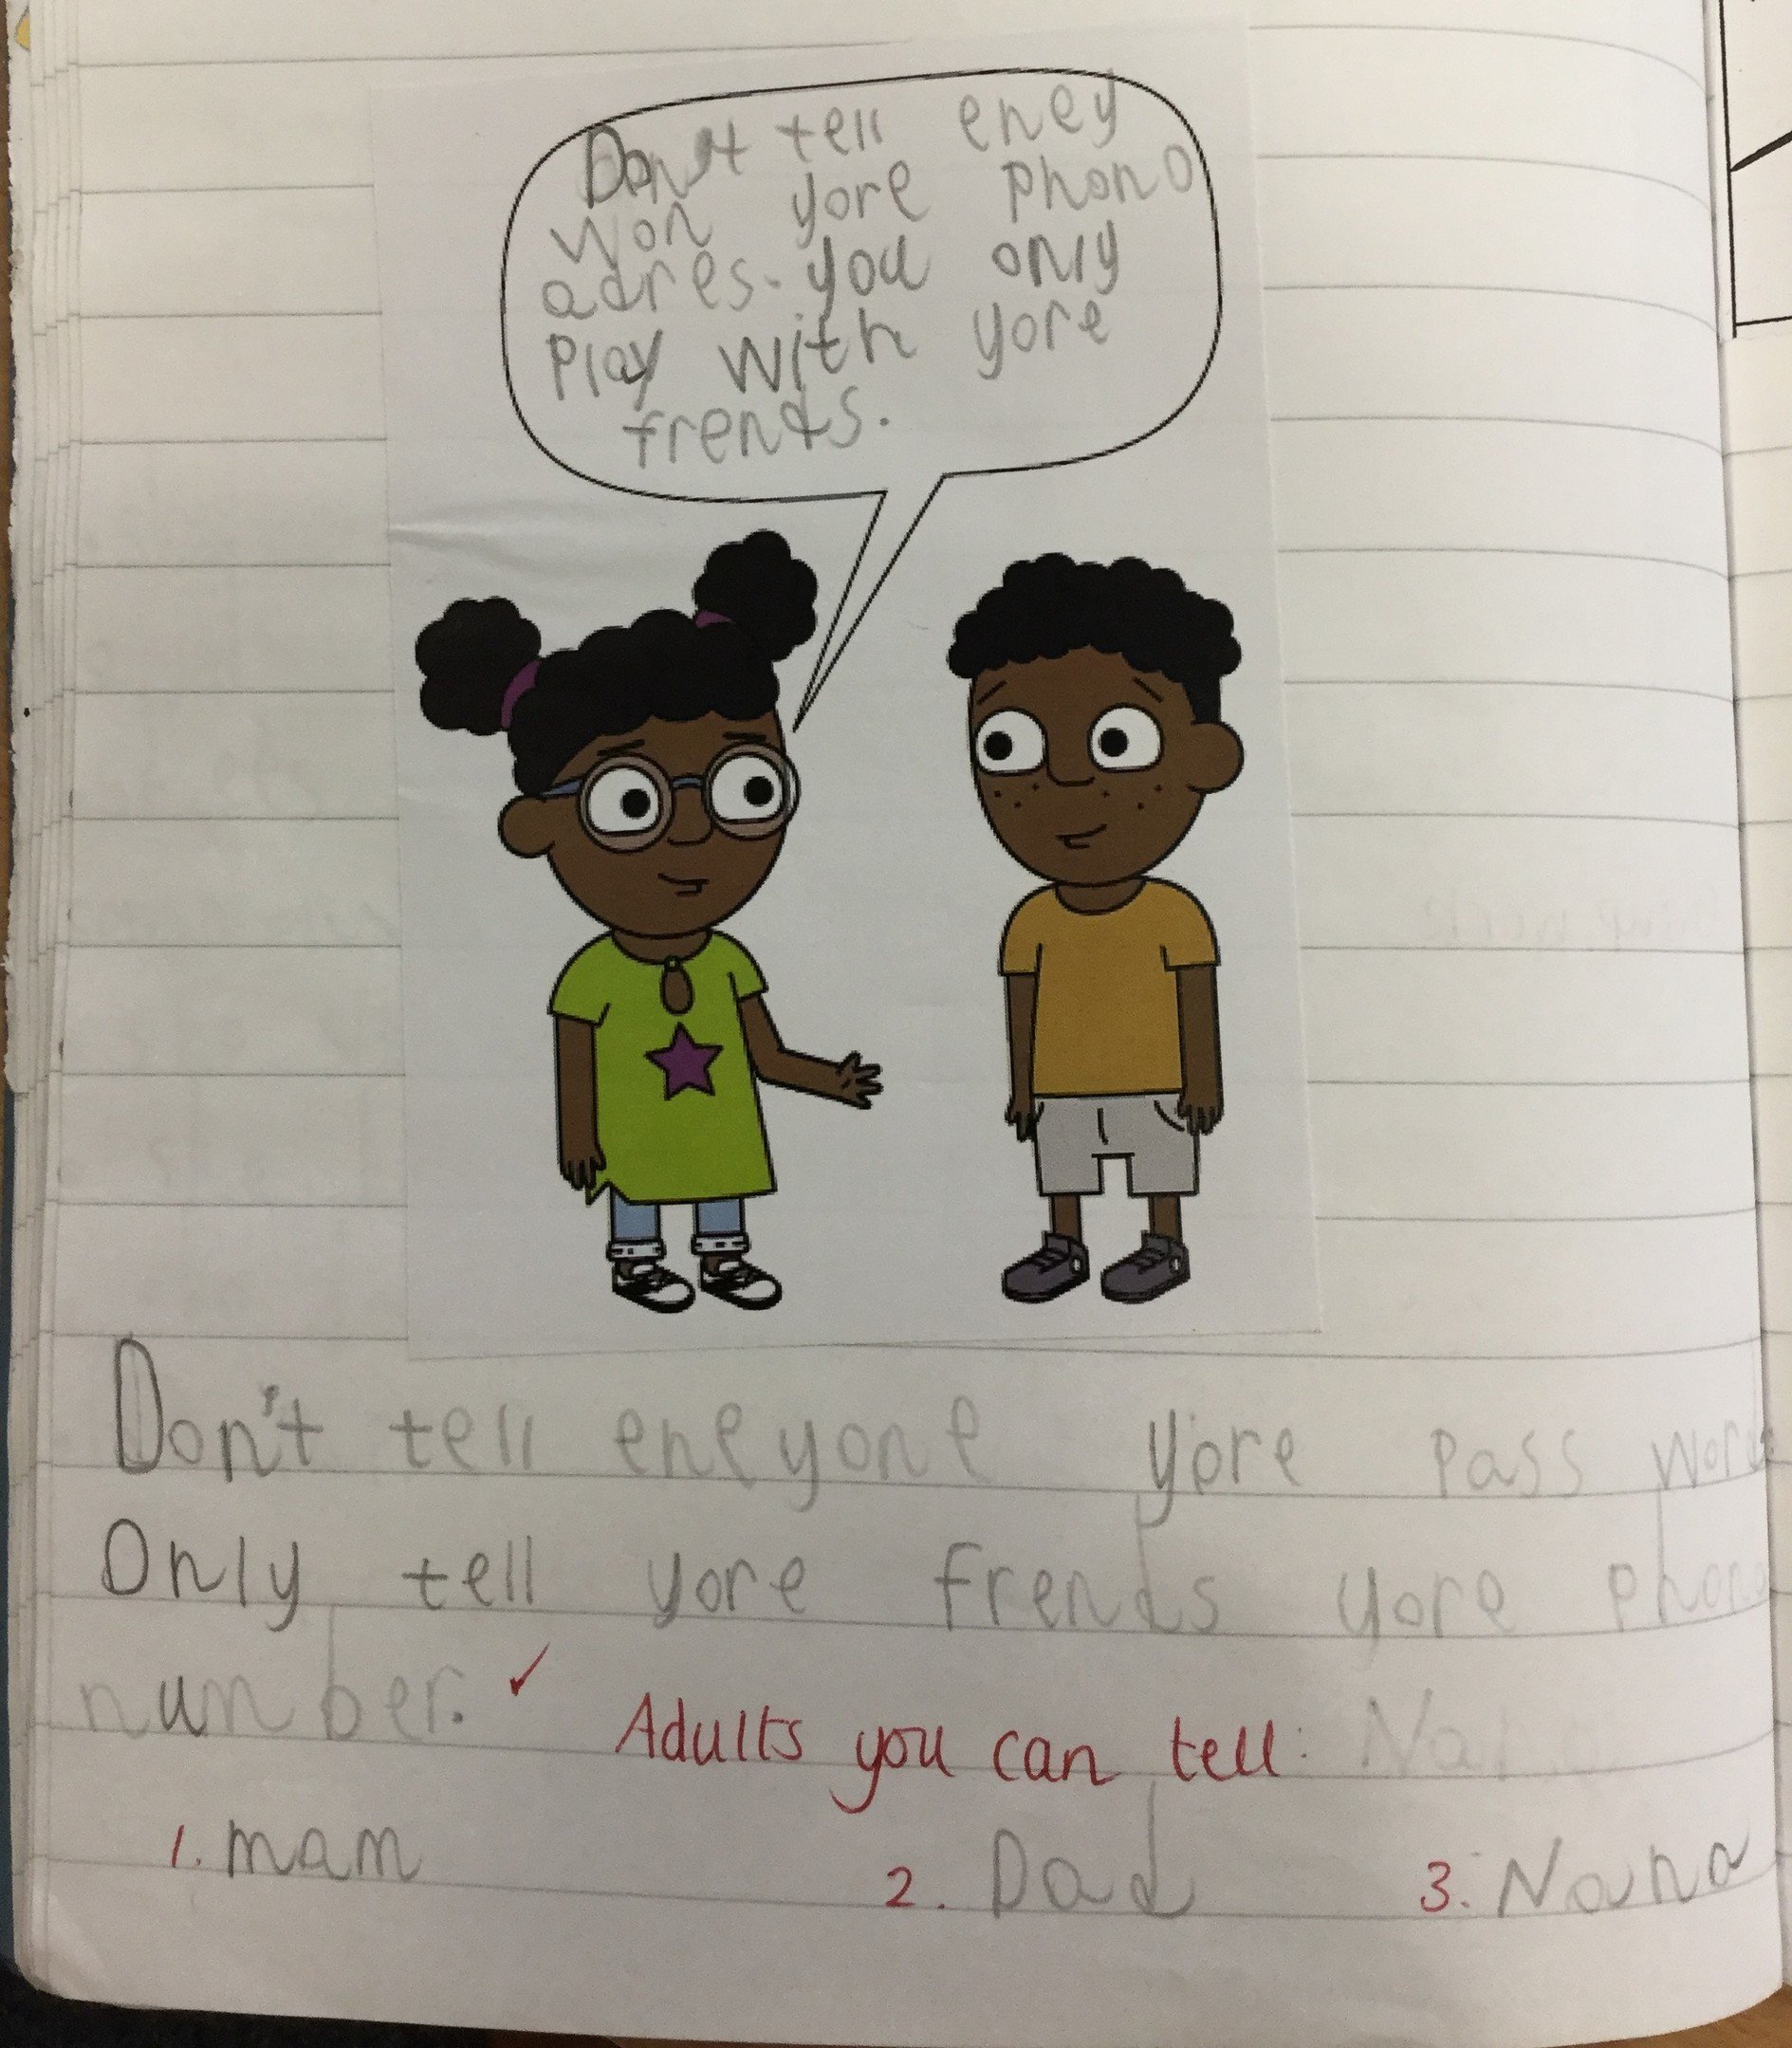 Don't tell eney
won yore phono
adres. you only
play with yore
frends.
Don't tell eneyone yore pass word
Only tell yore frends yore phone
number. ✓ Adults you can tell:
1. mam 2. Dad 3. Nana